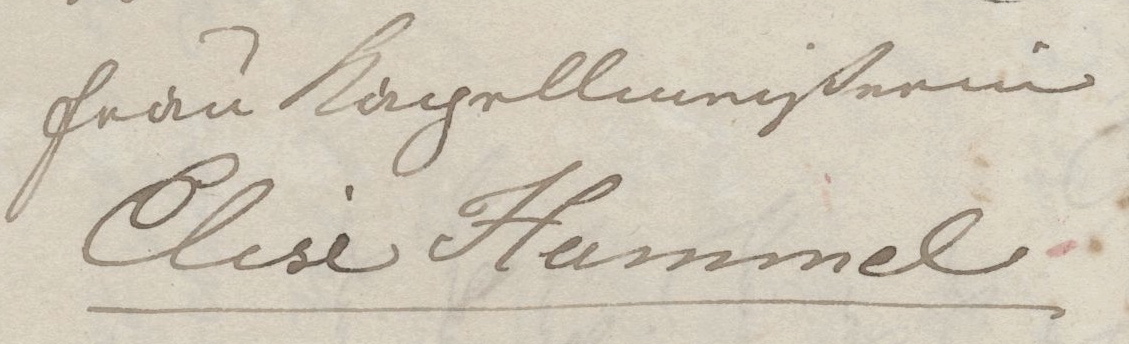 Frau Kapellmeisterin
Elise Hummel